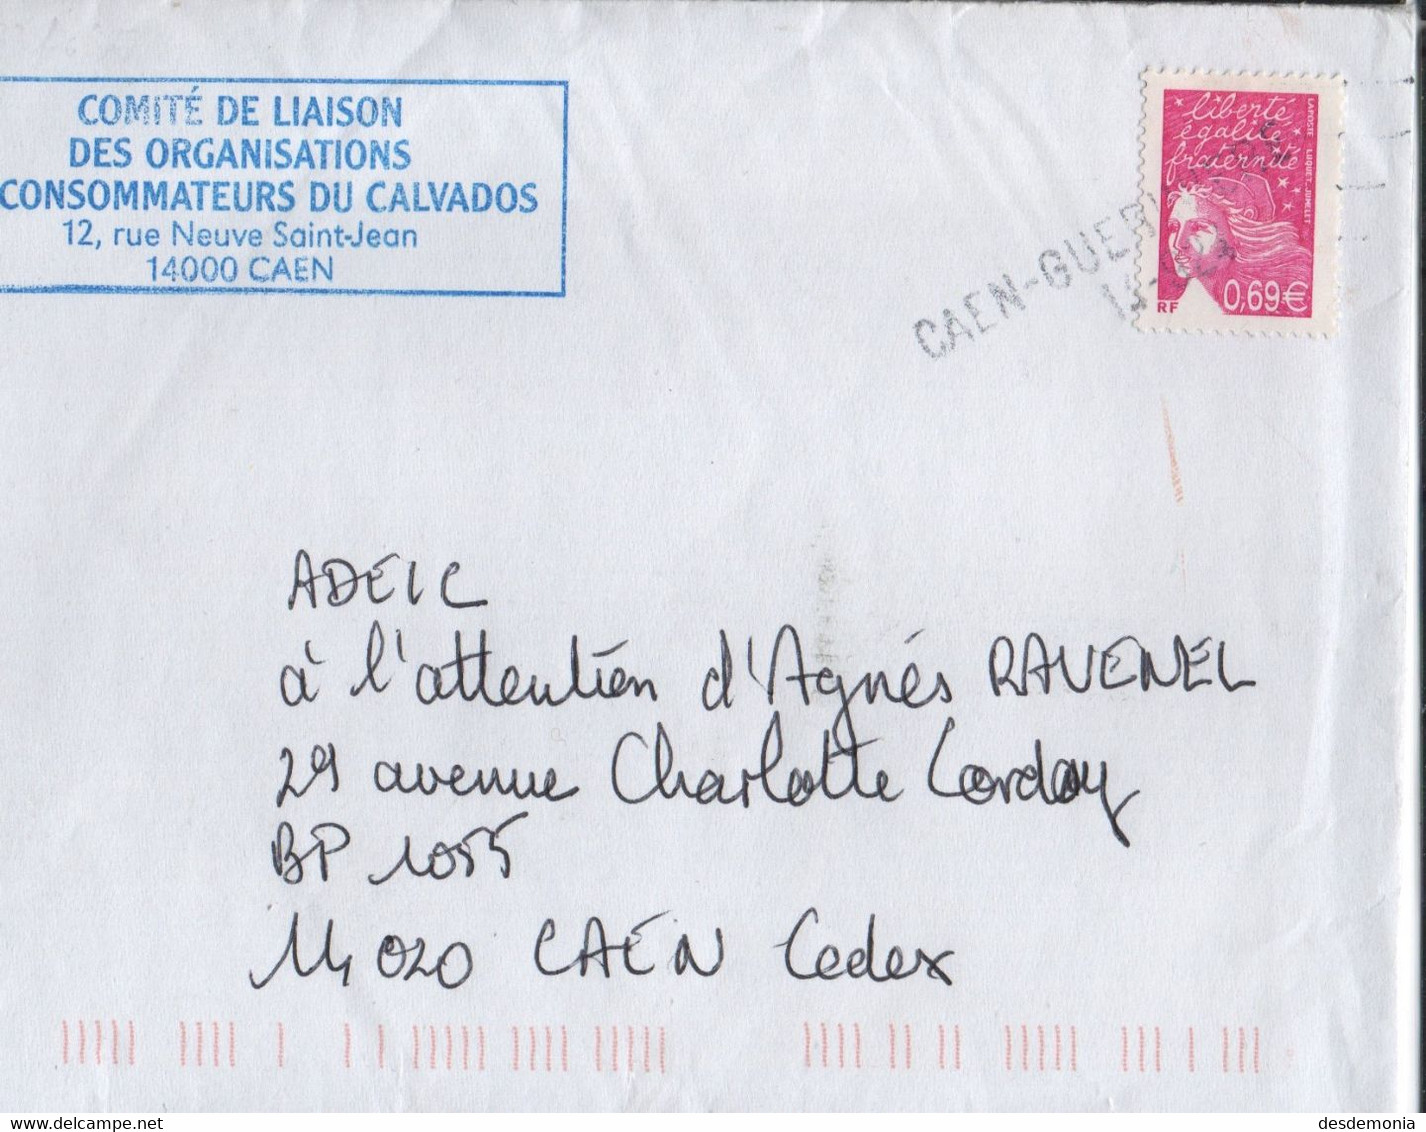 COMITÉ DE LIAISON
DES ORGANISATIONS
CONSOMMATEURS DU CALVADOS
12, rue Neuve Saint-Jean
14000 CAEN
liberté
égalité
fraternité
LAPOSTE LUQUET_JUMELET
RF
0,69€
CAEN-GUER
ADEIC
à l'attention d'Agnés RAVENEL
29 avenue Charlotte Corday
BP 1055
14020 CAEN Cedex
www.delcampe.net
desdemonia